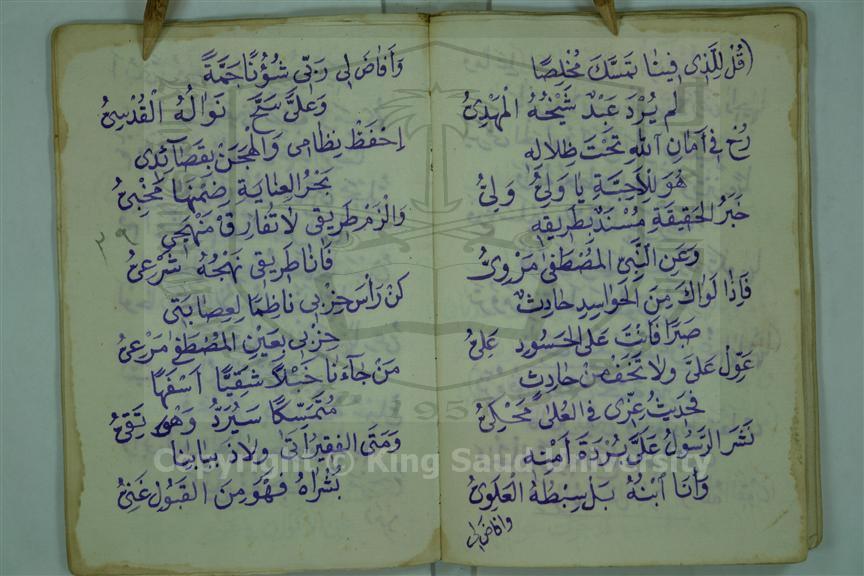 (قُلْ لِلَّذِى فِينَا تَمَسَّكَ مُخْلِصًا
لم يُرْدَ عَبْدٌ شَيْخُهُ الْمَهْدِىُّ
فِى أَمَانِ اللهِ تَحْتَ ظِلَالِهِ
هُوَ لِلْأَحِبَّةِ يَا وَلِىُّ وَلِىُّ
خَبَرُ الحَقِيقَةِ مُسْنَدٌ بِطَرِيقِهِ
وَعَنِ النَّبِىِّ المُصْطَفَى مَرْوِىُّ
فَإِذَا لَوَاكَ مِنَ الحَوَاسِدِ حَادِثٌ
صَبْرًا فَأَنْتَ عَلَى الحَسُودِ عَلِىُّ
عَوِّلْ عَلَىَّ وَلَا تَخَفْ مِنْ حَادِثٍ
فَحَدِيثُ عِزِّى فِى العُلَى مَحْكِىُّ
نَشَرَ الرَّسُولُ عَلَىَّ بُرْدَةَ أَمْنِهِ
وَأَنَا ابْنُهُ بَلْ سِبْطُهُ العَلَوِىُّ
وافاض لى
وَأَفَاضَ لِى رَبِّى شُؤُنًا جَمَّةً
وَعَلَىَّ سَحَّ نَوَالُهُ الْقُدْسِىُّ
اِحْفَظْ نِظَامِى وَالْهَجَنْ بِقَصَآئِدِى
بَحْرُ العِنَايَةِ ضِمْنَهَا مَخْبِىُّ
وَالْزَمْ طَرِيقِى لَا تُفَارِقْ مَنْهَجِى
فَأَنَا طَرِيقِى نَهْجُهُ شَرْعِىُّ
كُنْ رَأْسَ حِزْبِى نَاظِمًا لِعِصَابَتِى
حِزْبِى بِعَيْنِ المُصْطَفَى مَرْعِىُّ
مَنْ جَآءَنَا خَبْلًا شَقِيًّا أَسْفَهًا
مُتَمَسِّكًا سَيُرَدُّ وَهُوَ تَقِىُّ
وَمَتَى الفَقِيرُ أَتَى وَلَاذَ بِبَابِنَا
بُشْرَاهُ فَهْوَ مِنَ القَبُولِ غَنِىُّ
٢٩
Copyright © King Saud University
1957